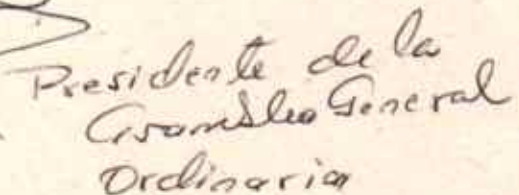 Presidente de la
Asamblea General
Ordinaria